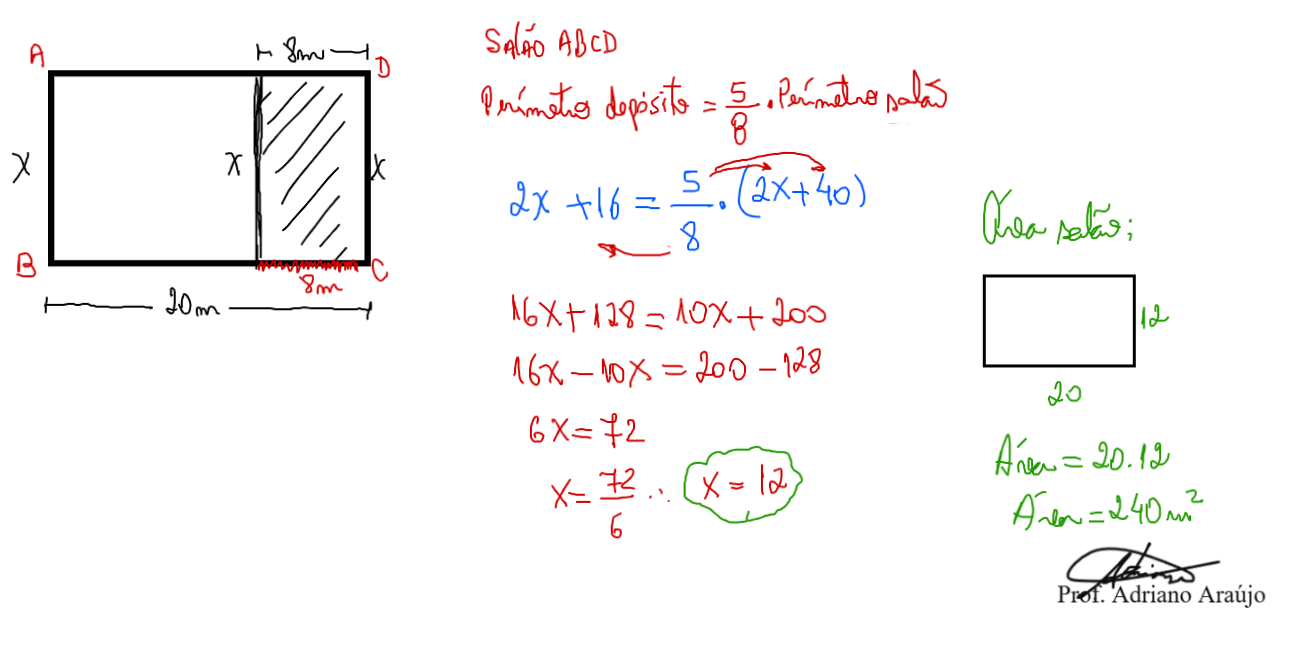 A
8m
D
X
X
X
B
C
8m
20m
SALÃO ABCD
Perímetro depósito = 5/8 . Perímetro salão
2x + 16 = 5/8 . (2x + 40)
16x + 128 = 10x + 200
16x - 10x = 200 - 128
6x = 72
x = 72/6 ∴ x = 12
Área salão;
12
20
Área = 20.12
Área = 240m²
Prof. Adriano Araújo